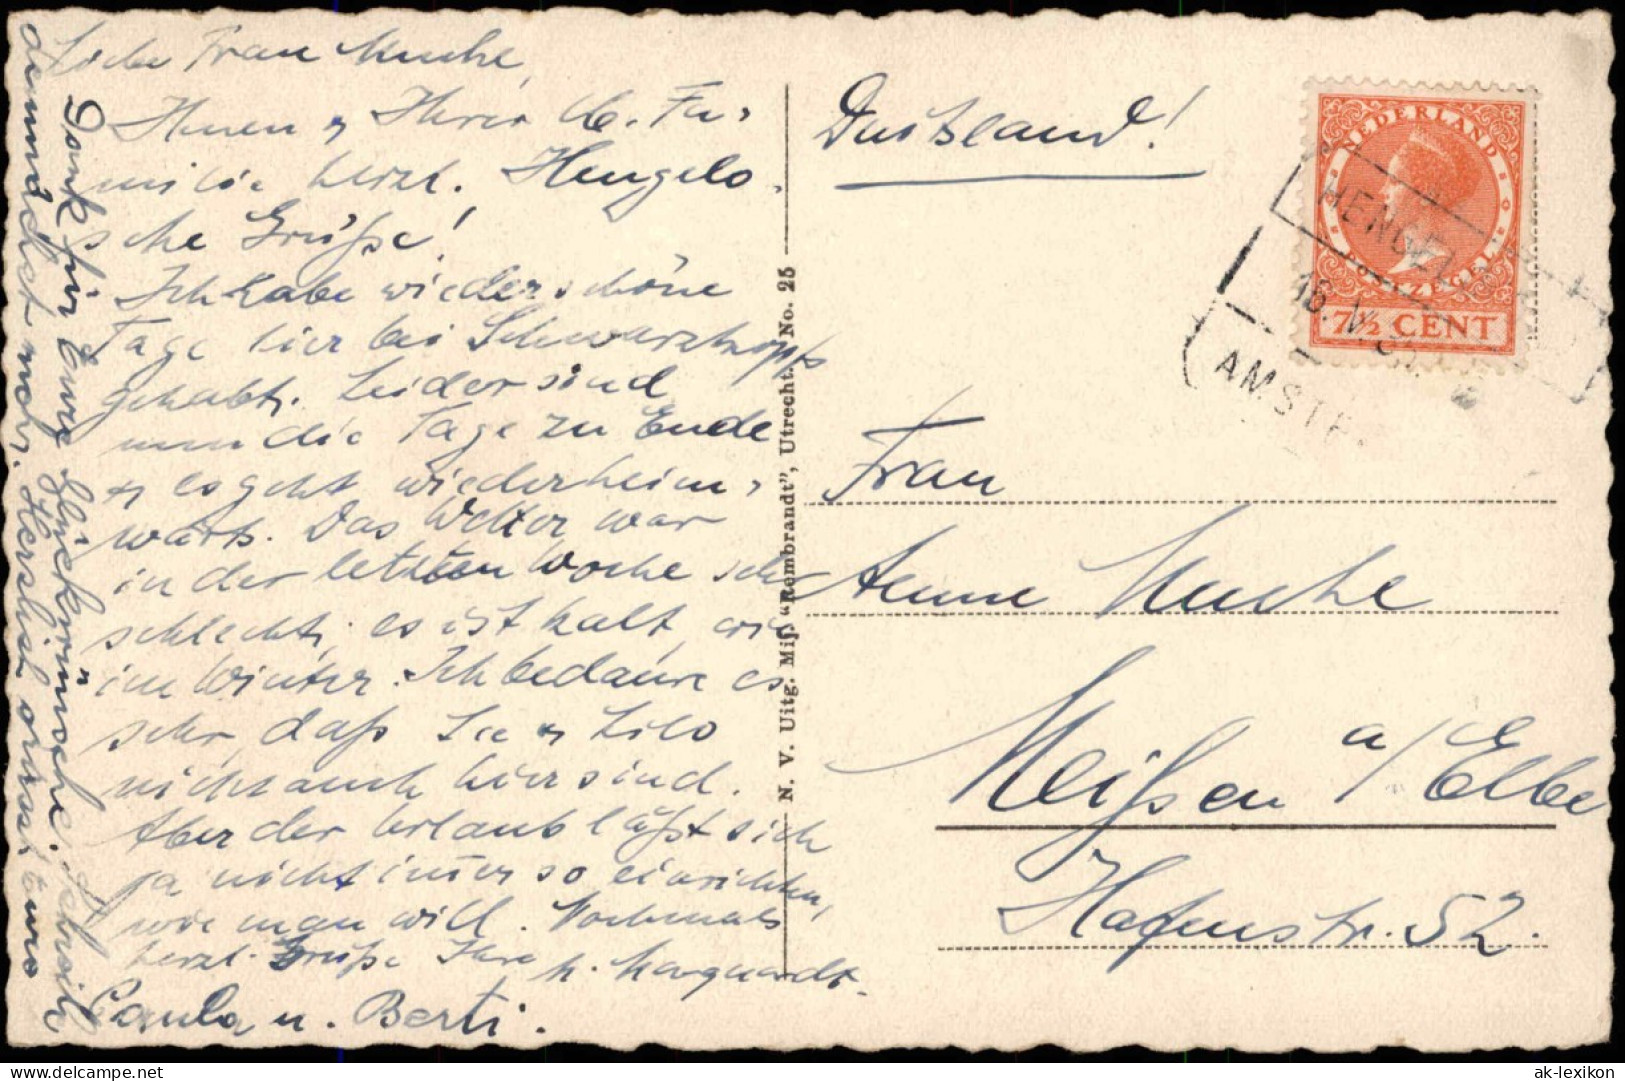 Liebe Frau Muche,
Ihnen u Ihrer lb. Fa-
milie herzl. Hengelo-
sche Grüße!
Ich habe wieder schöne
Tage hier bei Schwarzkopfs
gehabt. Leider sind
nun die Tage zu Ende
u es geht wieder heim-
wärts. Das Wetter war
in der letzten Woche sehr
schlecht, es ist kalt, wie
im Winter. Ich bedaure es
sehr, daß Sie u Lilo
nicht auch hier sind.
Aber der Urlaub läßt sich
ja nicht immer so einrichten,
wie man will. Nochmals
herzl. Grüße Ihre H. Marquardt.
Paula u. Berti.
Dank für Eure Glückwünsche, schreibe
demnächst mehr. Herzlich grüsst Euch
N. V. Uitg. Mij. "Rembrandt", Utrecht. No. 25
Duitsland!
NEDERLAND
POSTZEGEL
7½ CENT
HENGELO
16. V
AMSTE
Frau
Anne Muche
Meißen a/Elbe
Hafenstr. 52.
ak-lexikon